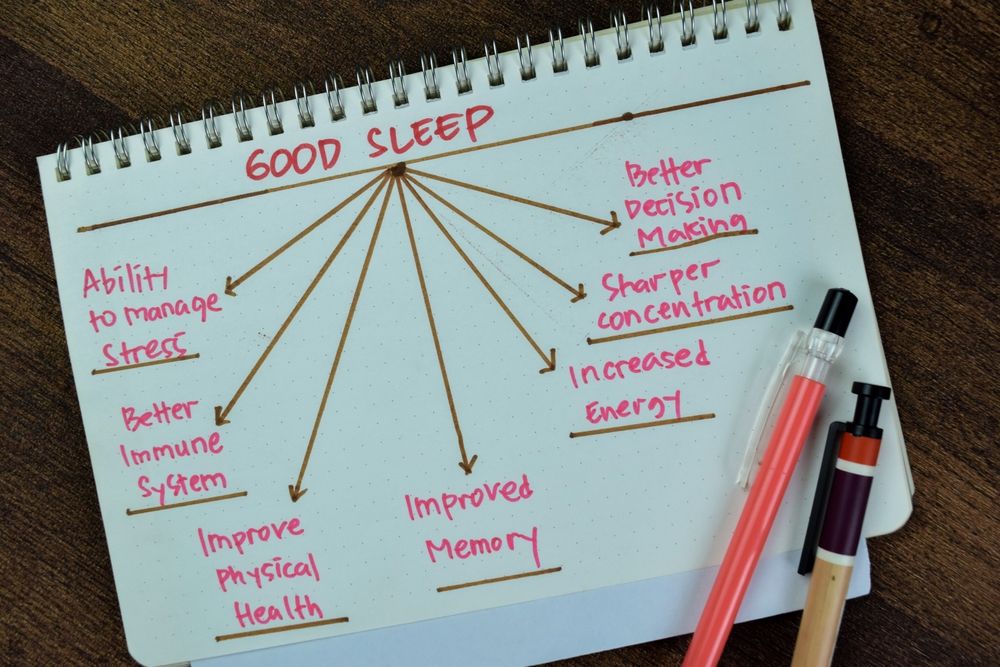 GOOD SLEEP
Ability
to manage
Stress
Better
Immune
System
Improve
physical
Health
Improved
Memory
Increased
Energy
Sharper
concentration
Better
Decision
Making